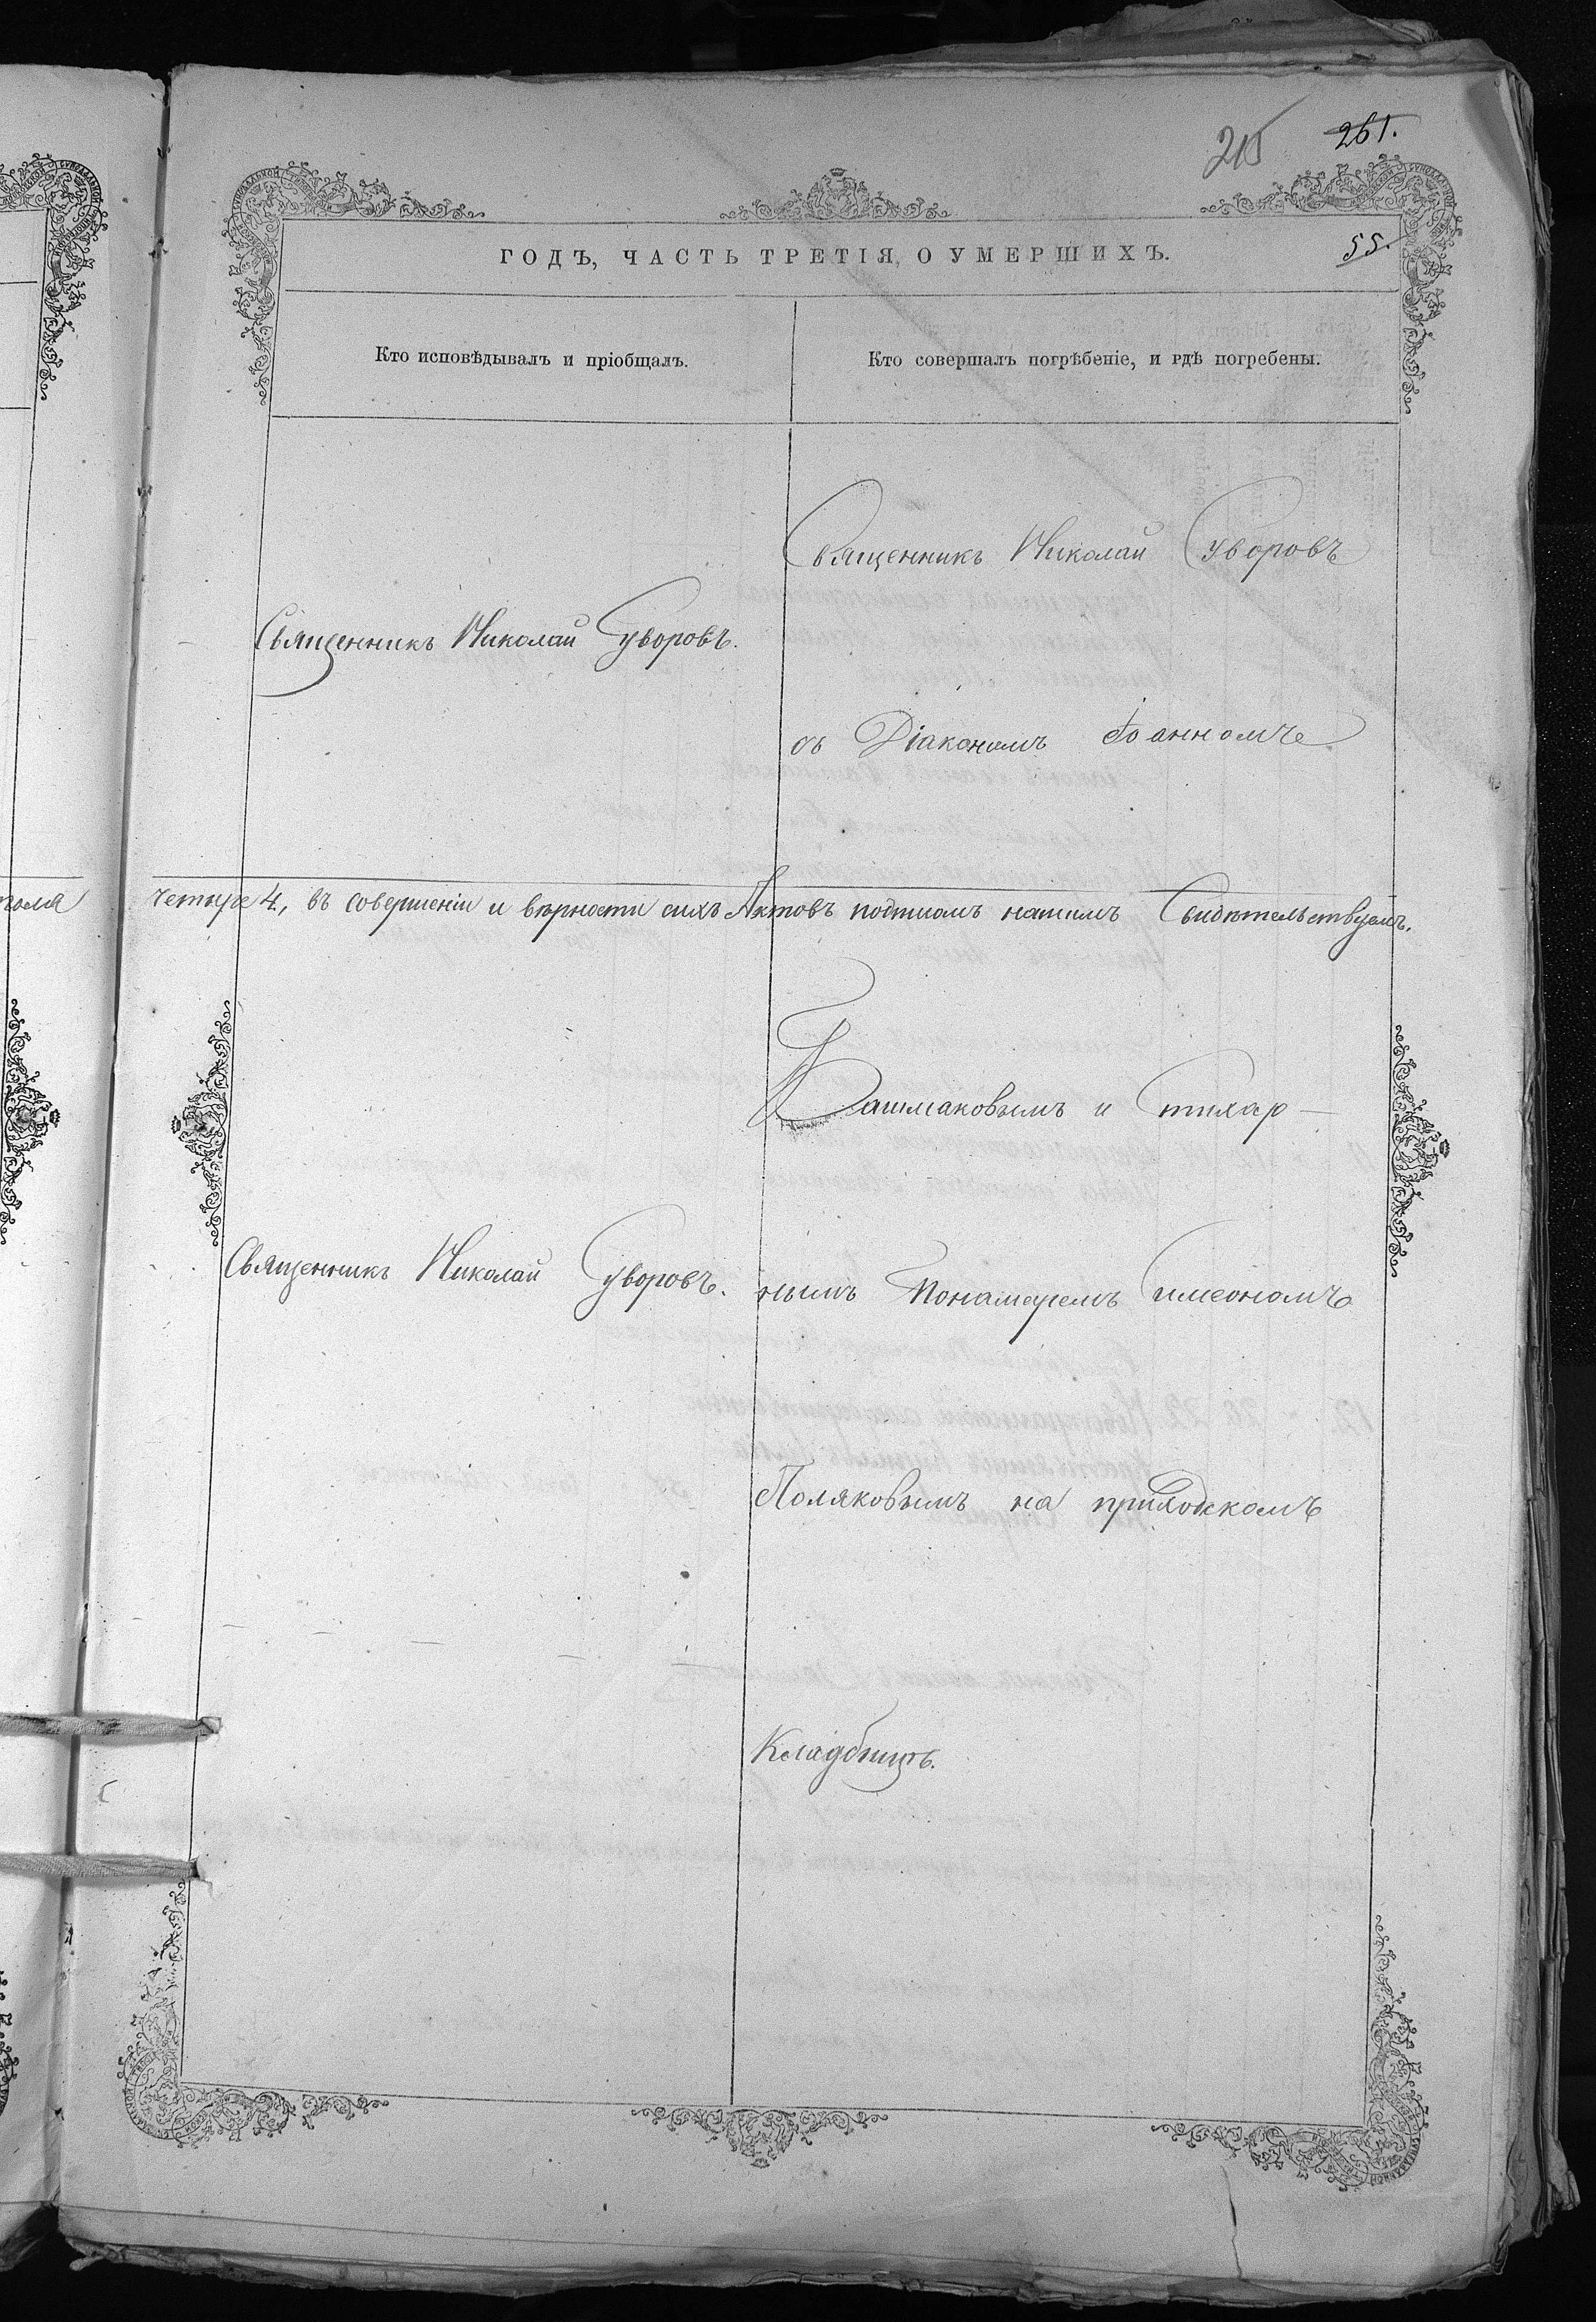 215 261.
ГОДЪ, ЧАСТЬ ТРЕТІЯ, О УМЕРШИХЪ.
55.
Кто исповѣдывалъ и пріобщалъ.
Кто совершалъ погрѣбеніе, и гдѣ погребены.
Священникъ Николай Суворовъ
Священникъ Николай Суворовъ.
съ Діакономъ Іоанномъ
четыре 4, въ совершеніи и вѣрности сихъ Актовъ подписомъ нашимъ Свидѣтельствуемъ.
Башмаковымъ и стихар-
Священникъ Николай Суворовъ.
нымъ Понамаремъ Симеономъ
Поляковымъ на приходскомъ
Кладбищѣ.